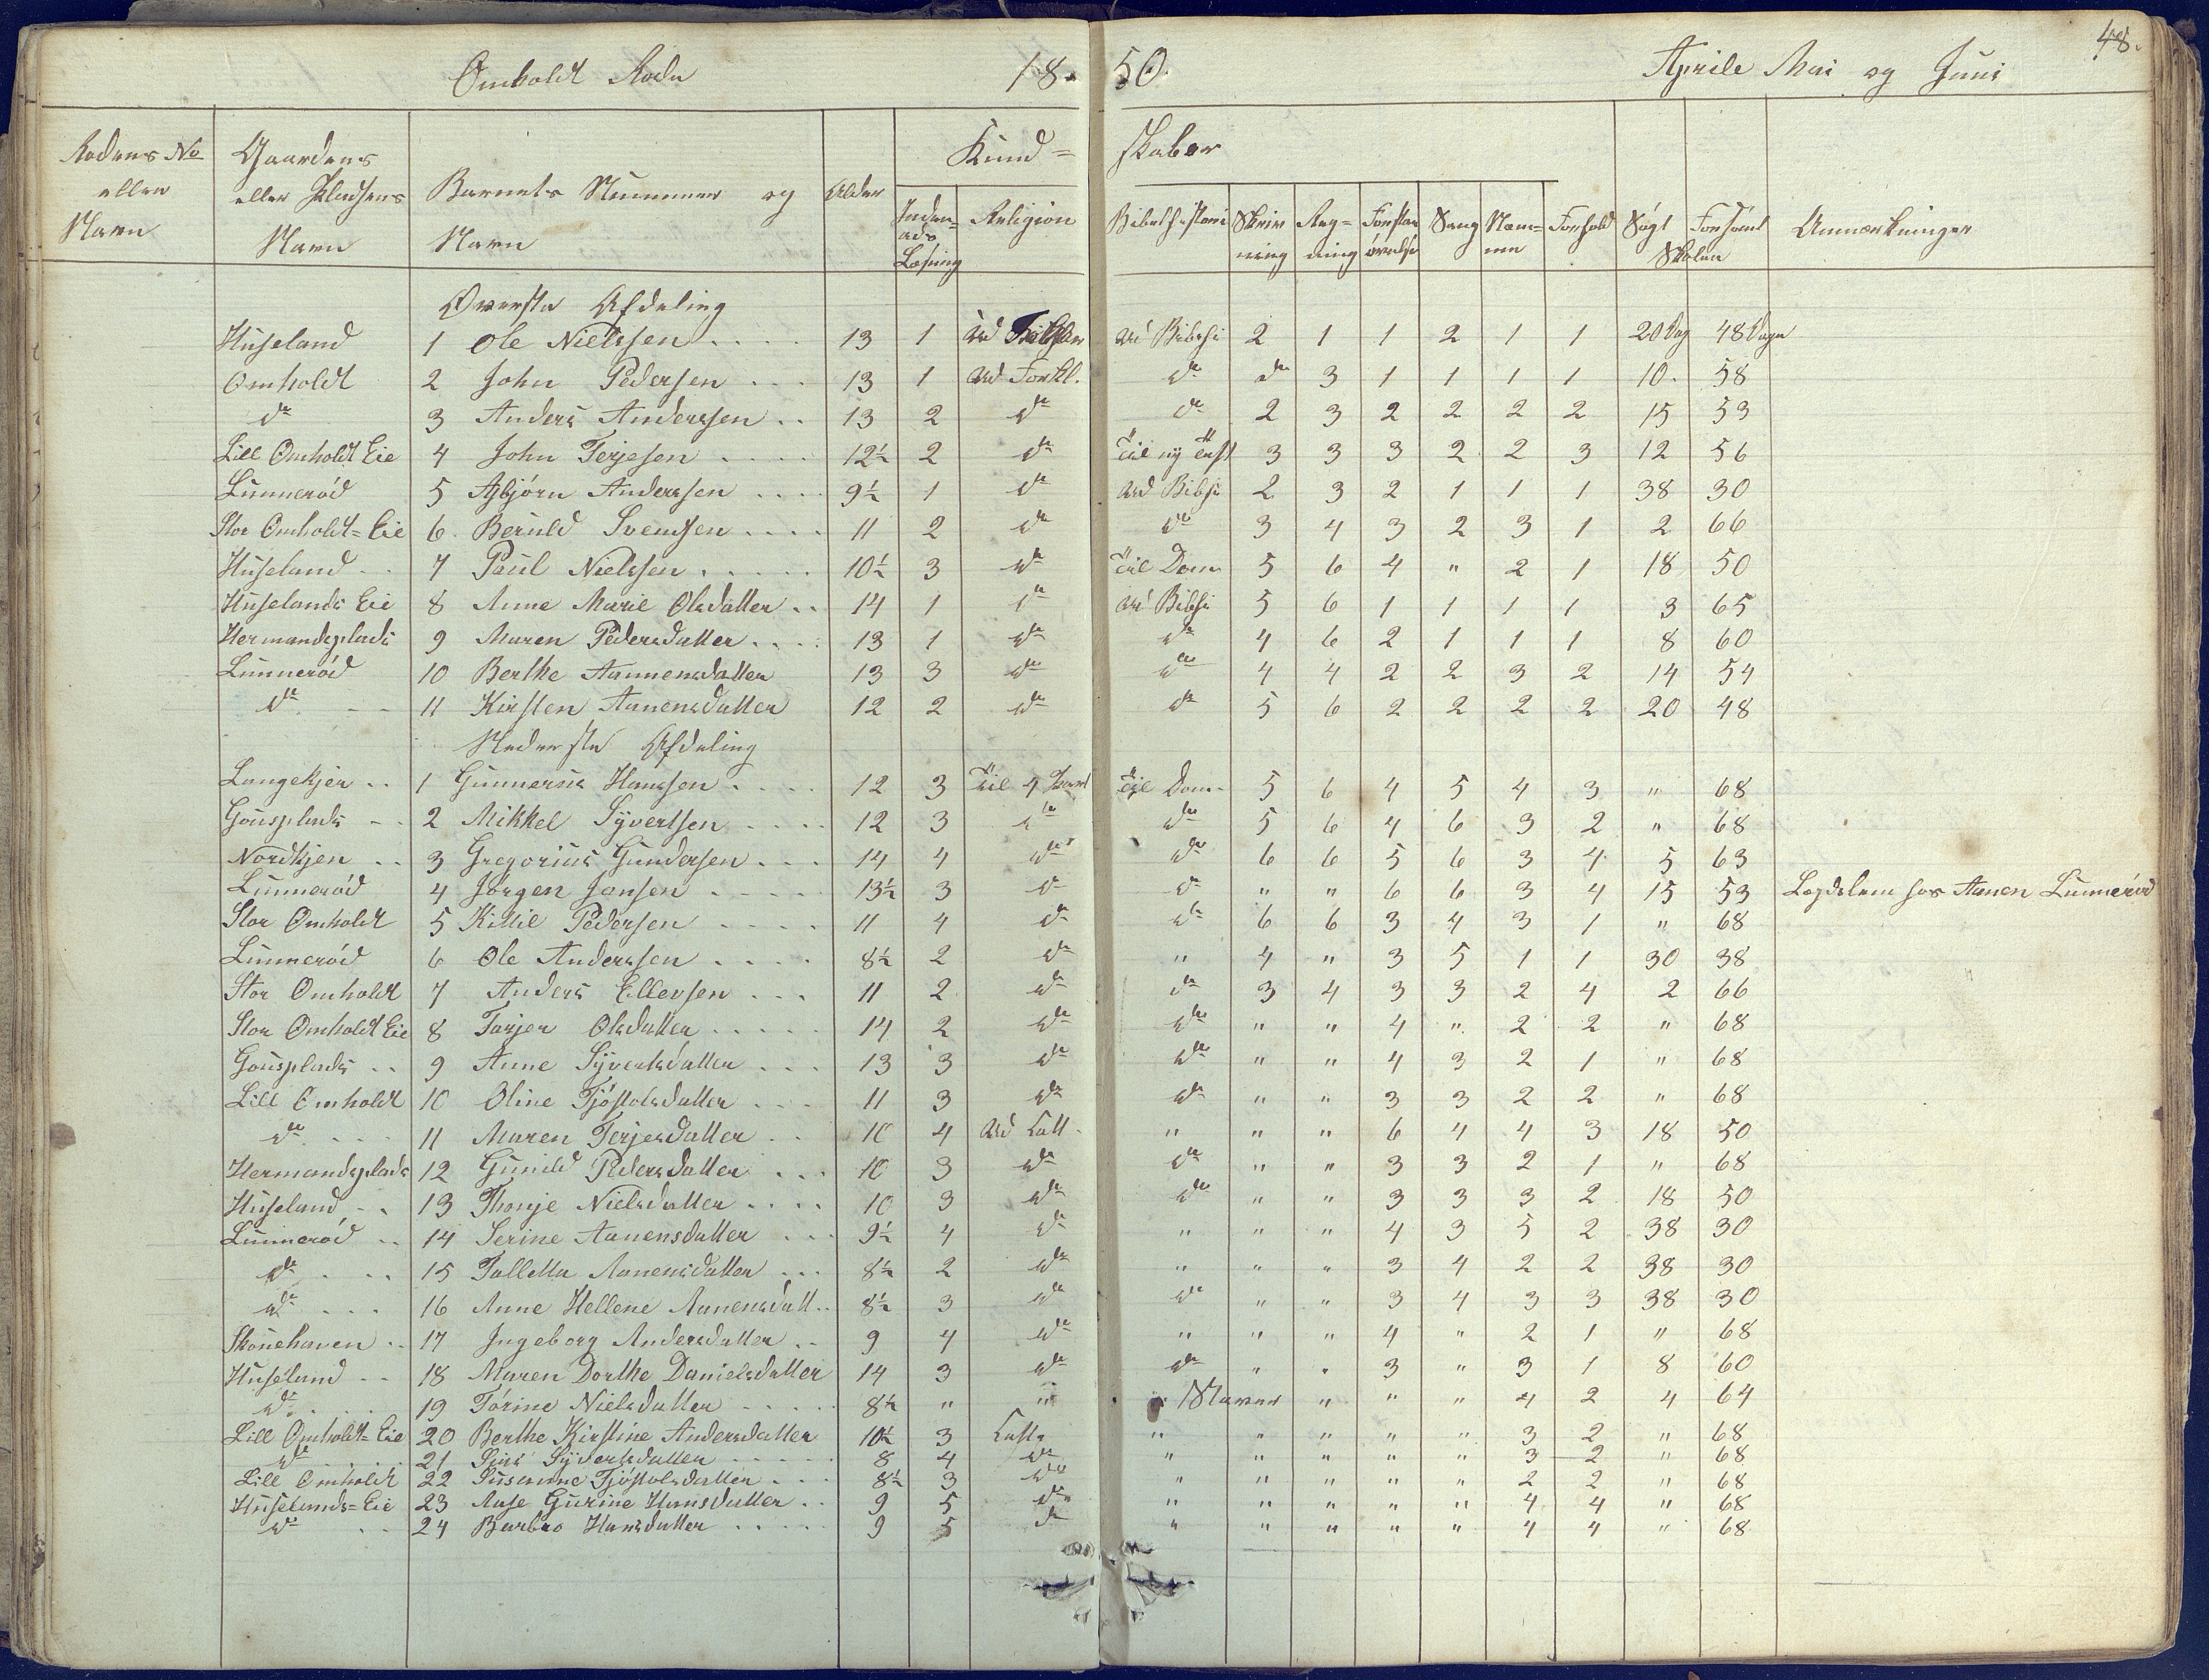 48.
Omholdt Rode 18 50. Aprile Mai og Juni
Rodens No eller Navn | Gaardens eller Pladsens Navn | Barnets Nummer og Navn | Alder | Kund= skaber | Søgt Skolen | Forsømt | Anmærkninger
Inden= ads Læsning | Religion | Bibelhistorie | Skriv ning | Reg= ning | Forstan øvelse | Sang | Nem= me | Forhold
Øverste Afdeling
Huseland 1 Ole Nielssen 13 1 ud ud Bibelhi 2 1 1 2 1 1 20 Dag 48 Dage
Omholdt 2 John Pedersen 13 1 ud Forkl. do do 3 1 1 1 1 10. 58
do 3 Anders Anderssen 13 2 do do 2 3 2 2 2 2 15 53
Lill Omholdt Eie 4 John Terjesen 12½ 2 do Til ny Test 3 3 3 2 2 3 12 56
Lunnerød 5 Asbjørn Anderssen 9½ 1 do ud Bibhi 2 3 2 1 1 1 38 30
Stor Omholdt=Eie 6. Beruld Svendsen 11 2 do do 3 4 3 2 3 1 2 66
Huseland 7 Paul Nielssen 10½ 3 do Til Dom 5 6 4 " 2 1 18 50
Huselands Eie 8 Anne Marie Olsdatter 14 1 do ud Bibhi 5 6 1 1 1 1 3 65
Hermandsplads 9 Maren Pedersdatter 13 1 do do 4 6 2 1 1 1 8 60
Lunnerød 10 Berthe Aanensdatter 13 3 do do 4 4 2 2 3 2 14 54
do 11 Kirsten Aanensdatter 12 2 do do 5 6 2 2 2 2 20 48
Nederste Afdeling
Langekjer 1 Gunnerius Hanssen 12 3 Til 4 Part Til Dom 5 6 4 5 4 3 " 68
Gousplads 2 Mikkel Syvertsen 12 3 do do 5 6 4 6 3 2 " 68
Nordkjen 3 Gregorius Gundersen 14 4 do do 6 6 5 6 3 4 5 63
Lunnerød 4 Jørgen Jansen 13½ 3 do do " " 6 6 3 4 15 53 Lægdslem hos Aanen Lunnerød
Stor Omholdt 5 Kittil Pedersen 11 4 do do 6 6 3 4 3 1 " 68
Lunnerød 6 Ole Anderssen 8½ 2 do " 4 " 3 5 1 1 30 38
Stor Omholdt 7 Anders Ellevsen 11 2 do do 3 4 3 3 2 4 2 66
Stor Omholdt Eie 8 Tarjer Olsdatter 14 2 do do " " 4 " 2 2 " 68
Gousplads 9 Anne Syvertsdatter 13 3 do do " " 4 3 2 1 " 68
Lill Omholdt 10 Oline Tjøstolsdatter 11 3 do do " " 3 3 2 2 " 68
do 11 Maren Terjesdatter 10 4 ud Catt " " " 6 4 4 3 18 50
Hermandsplads 12 Gunild Pedersdatter 10 3 do do " " 3 3 2 1 " 68
Huseland 13 Thonje Nielsdatter 10 3 do do " " 3 3 3 2 18 50
Lunnerød 14 Serine Aanensdatter 9½ 4 do " " " 4 3 5 2 38 30
do 15 Talletta Aanensdatter 8½ 2 do " " " 3 4 2 2 38 30
do 16 Anne Hellene Aanensdatt 8½ 3 do do " " 3 4 3 3 38 30
Skonehaven 17 Ingeborg Andersdatter 9 4 do " " " 4 " 2 1 " 68
Huseland 18 Maren Dorthe Danielsdatter 14 3 do do " " 3 " 3 1 8 60
do 19 Tørine Nielsdatter 8½ " " " Staver " " " 4 2 4 64
Lill Omholdt=Eie 20 Berthe Kirstine Andersdatter 10½ 3 Catt " " " " " 3 2 " 68
do 21 Siri Syvertsdatter 8 4 do " " " " " 3 2 " 68
Lill Omholdt 22 Susanne Tjøstolsdatter 8½ 3 do " " " " " 2 2 " 68
Huselands=Eie 23 Aase Gurine Hansdatter 9 5 do " " " " " 4 4 " 68
do 24 Barbro Hansdatter 9 5 do " " " " " 4 4 " 68